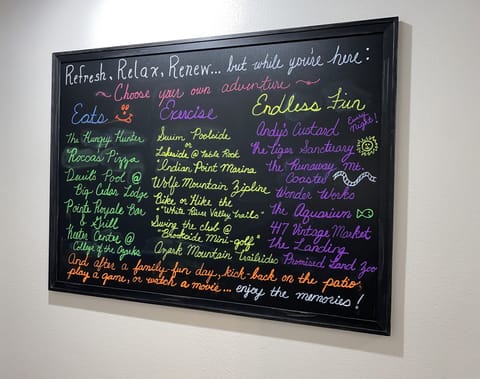 Refresh, Relax, Renew... but while you're here:
~ Choose your own adventure ~
Eats
The Hungry Hunter
Rocca's Pizza
Devil's Pool @
Big Cedar Lodge
Pointe Royale Bar
& Grill
Keeter Center @
College of the Ozarks
Exercise
Swim Poolside
or
Lakeside @ Table Rock
Indian Point Marina
Wolfe Mountain Zipline
Bike or Hike the
"White River Valley Trails"
Swing the club @
"Brookside Mini-golf"
Ozark Mountain Trailrides
Endless Fun
Andy's Custard Every Night!
The Tiger Sanctuary
The Runaway Mt.
Coaster
Wonder Works
The Aquarium
417 Vintage Market
The Landing
Promised Land Zoo
And after a family fun day, kick-back on the patio,
play a game, or watch a movie... enjoy the memories!